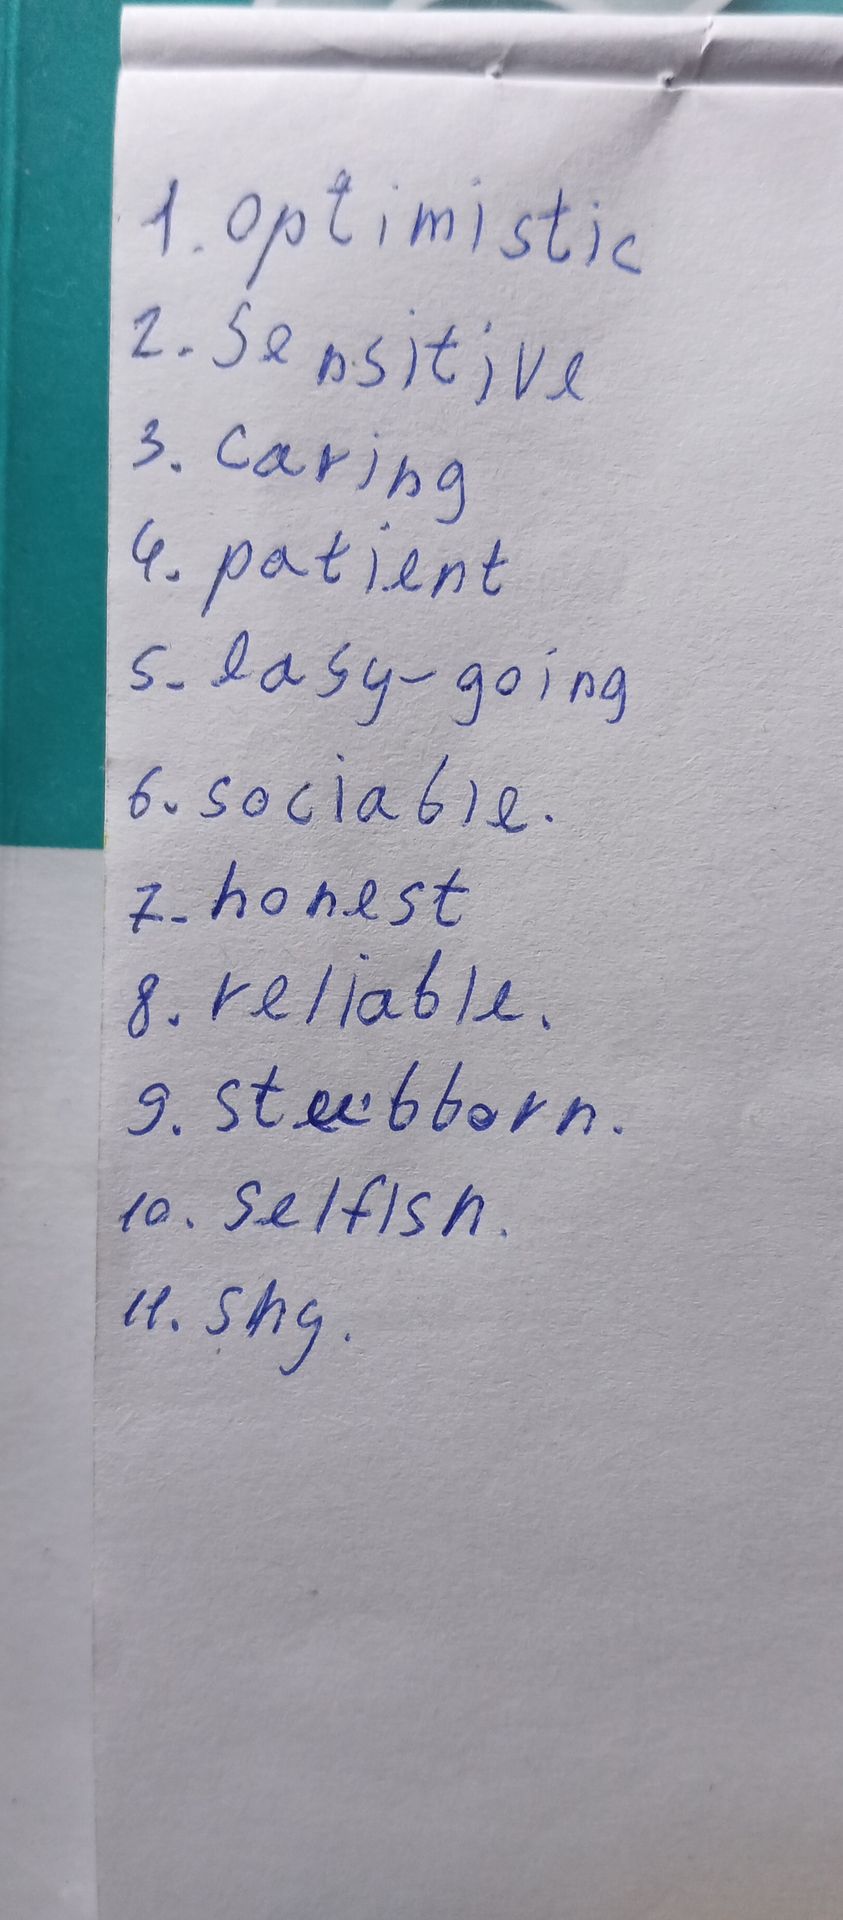 1. optimistic
2. Sensitive
3. caring
4. patient
5. easy-going
6. sociable.
7. honest
8. reliable.
9. stubborn.
10. selfish.
11. shy.